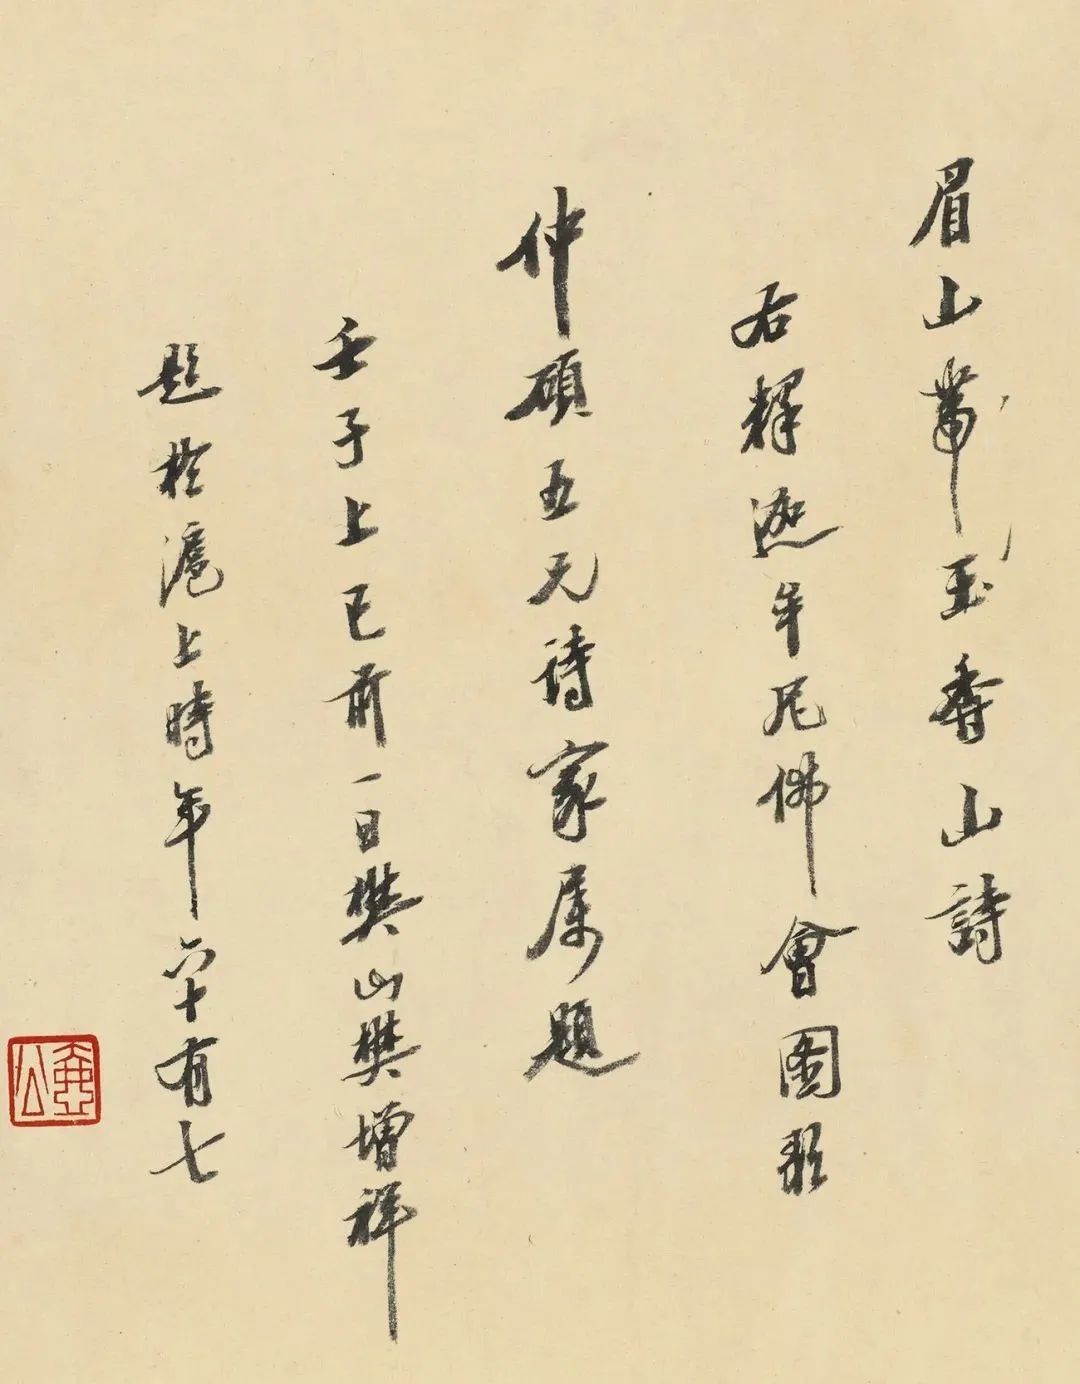 眉山帶玉香山詩
右釋迦牟尼佛會圖歌
仲碩五兄詩家属題
壬子上巳前一日樊山樊增祥
題於滬上時年六十有七